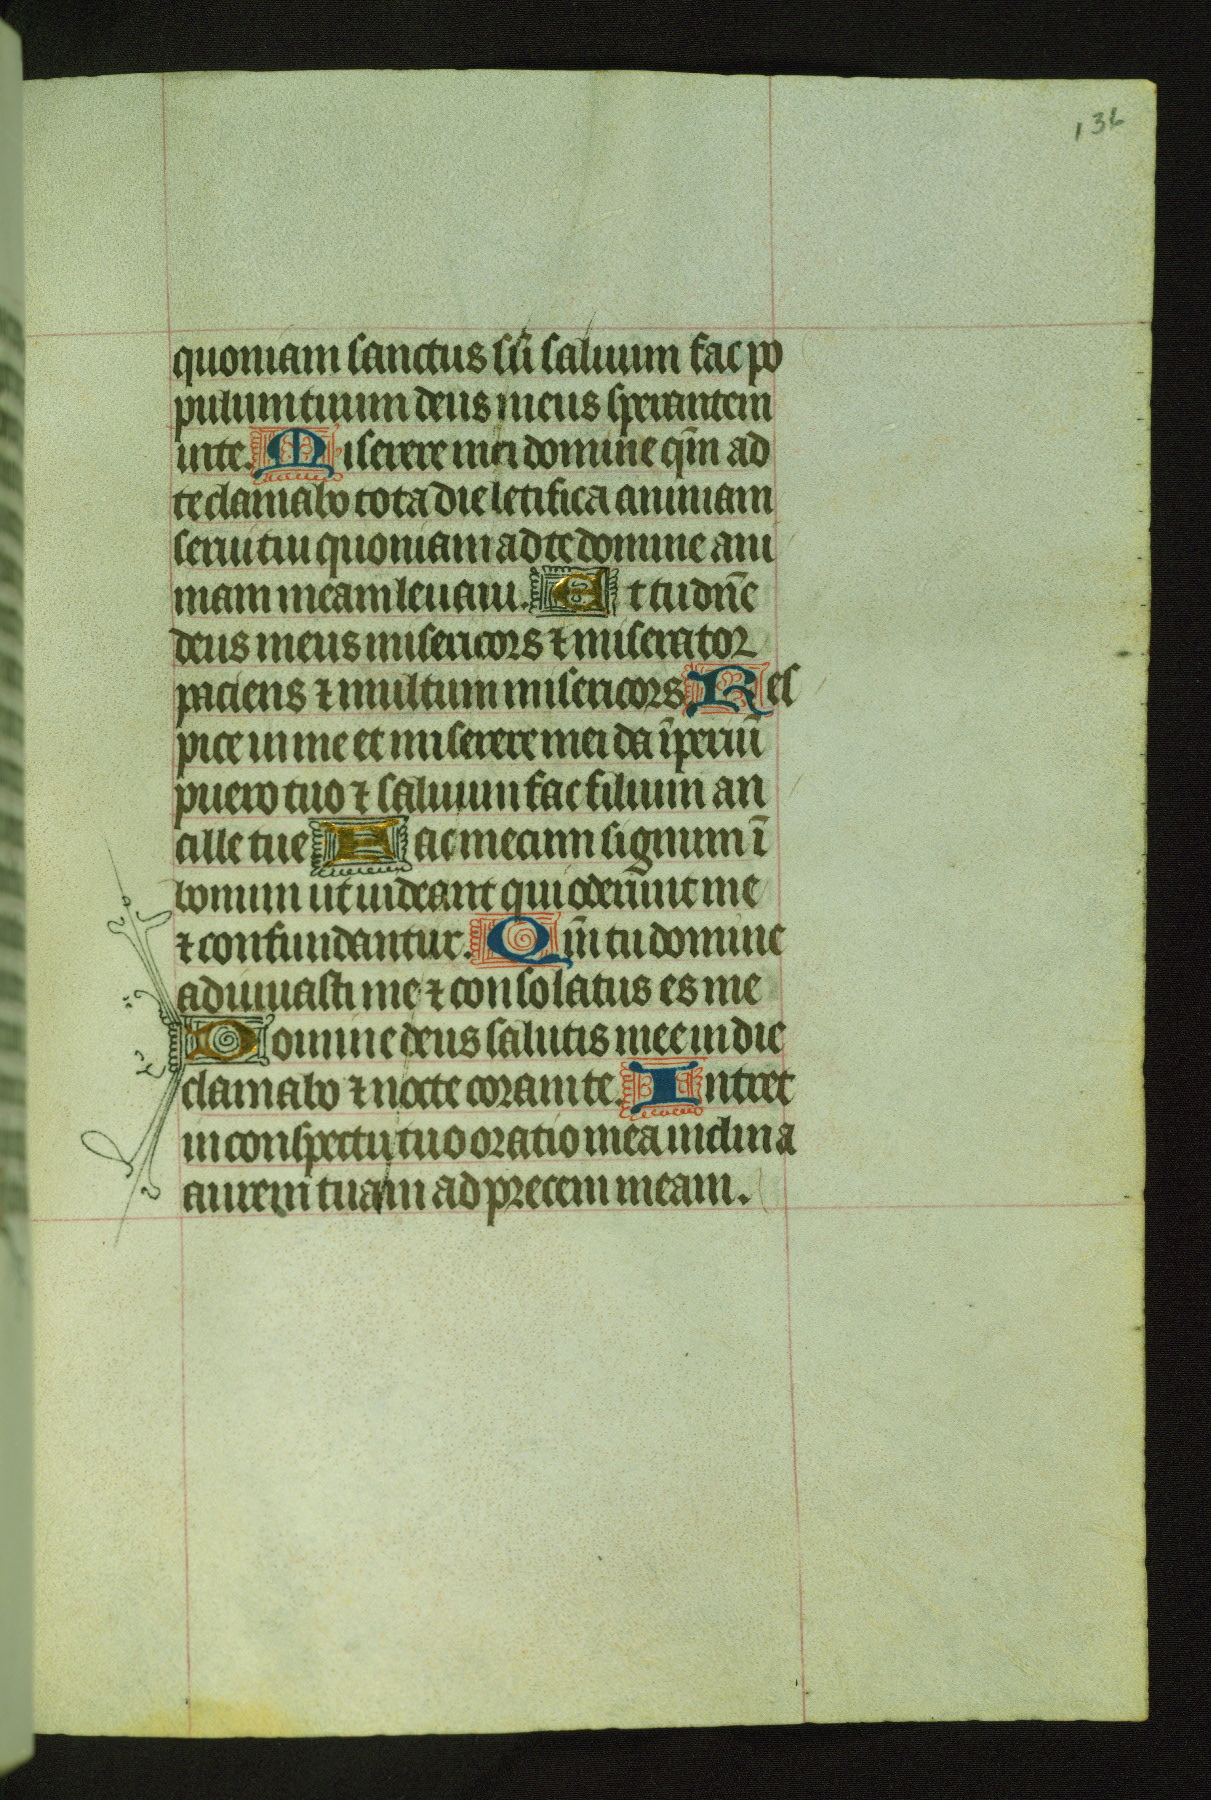 136
quoniam sanctus sū saluum fac po
pulum tuum deus meus sperantem
in te. Miserere mei domine qm̄ ad
te clamabo tota die letifica animam
serui tui quoniam ad te domine ani
mam meam leuaui. Et tu dn̄e
deus meus misericors ⁊ miserator
paciens ⁊ multum misericors Res
pice in me et miserere mei da īperiū
puero tuo ⁊ saluum fac filium an
cille tue Fac mecum signum ī
bonum ut uideant qui oderūnt me
⁊ confundantur. Qm̄ tu domine
adiuuasti me ⁊ consolatus es me
Domine deus salutis mee in die
clamabo ⁊ nocte coram te. Intret
in conspectu tuo oratio mea inclina
aurem tuam ad precem meam.